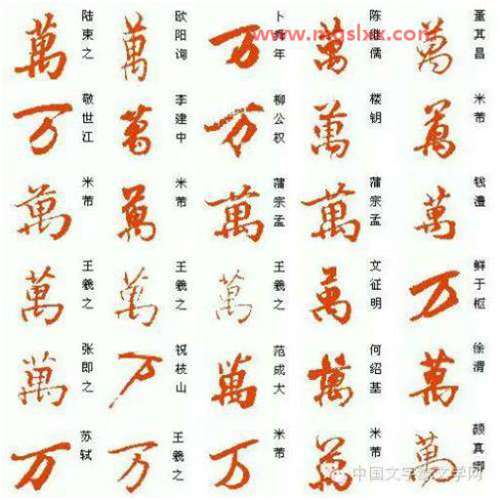 www.mgslxx.com
萬 陆柬之
萬 欧阳询
万 卜舜年
萬 陈继儒
萬 董其昌
万 敬世江
萬 李建中
万 柳公权
萬 楼钥
萬 米芾
萬 米芾
萬 米芾
萬 蒲宗孟
萬 蒲宗孟
萬 钱澧
萬 王羲之
萬 王羲之
萬 王羲之
萬 文征明
万 鲜于枢
萬 张即之
万 祝枝山
萬 范成大
萬 何绍基
萬 徐渭
万 苏轼
万 王羲之
万 米芾
萬 米芾
萬 颜真卿
中国文字 文学网